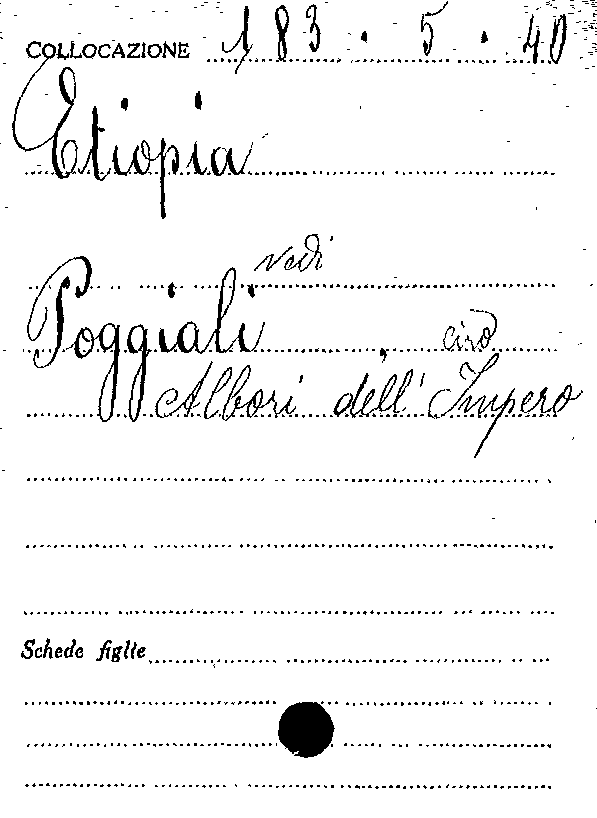 COLLOCAZIONE 183 . 5 . 40
Etiopia
vedi
Poggiali, Ciro
Albori dell'Impero
Schede figlie